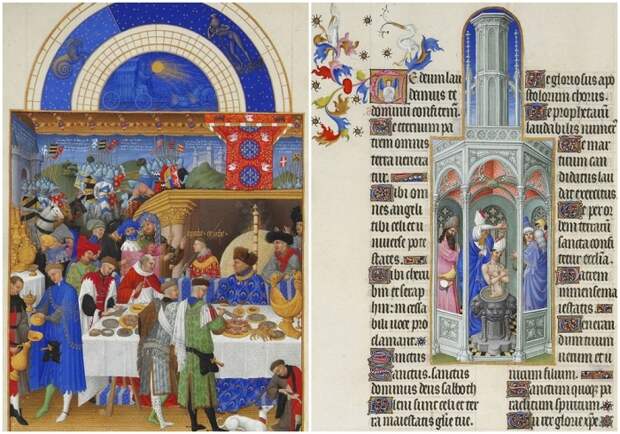 Te deum lau
damus te
dominū confitemur.
Te eternum pa
trem omnis
terra venera
tur.
Tibi om
nes angeli
tibi celi et u
niverse pote
states.
Tibi cheru
bin et seraph
hin: incessa
bili voce pro
clamant.
Sanctus
Sanctus. sanctus
dominus deus sabaoth
Pleni sunt celi et ter
ra maiestatis glīe tue.
Te gloriosus apo
stolorum chorus.
Te prophetarū
laudabilis numer
Te mar
tirum can
didatus lau
dat exercitus
Te per or
bem terrarū
sancta confi
tetur ecclīa.
Patrem
immense ma
iestatis.
Veneran
dum tuum
verum et u
nicum filium.
Sanctum quoq; pa
raclitum spiritum.
Tu rex glorie xp̄e.